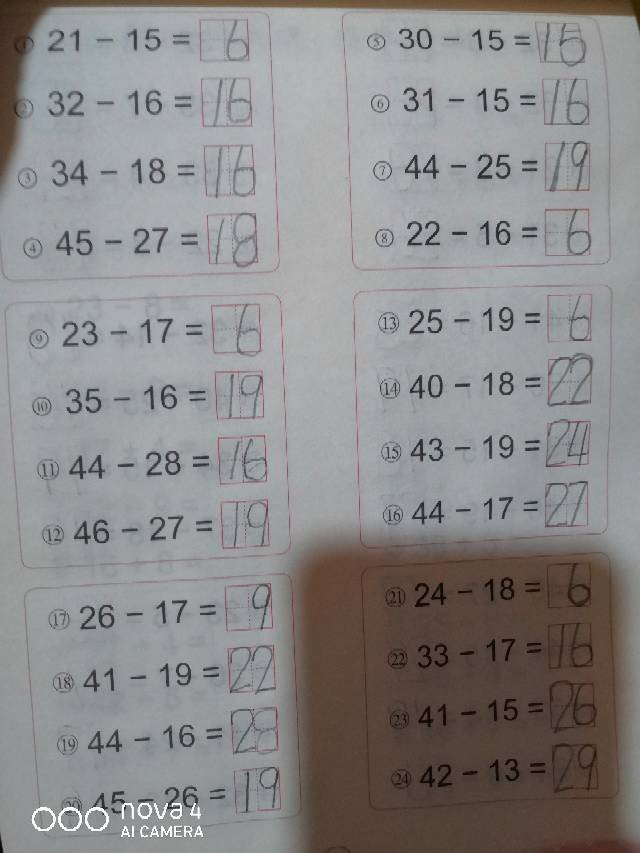 ① 21 − 15 = 6
② 32 − 16 = 16
③ 34 − 18 = 16
④ 45 − 27 = 18
⑤ 30 − 15 = 15
⑥ 31 − 15 = 16
⑦ 44 − 25 = 19
⑧ 22 − 16 = 6
⑨ 23 − 17 = 6
⑩ 35 − 16 = 19
⑪ 44 − 28 = 16
⑫ 46 − 27 = 19
⑬ 25 − 19 = 6
⑭ 40 − 18 = 22
⑮ 43 − 19 = 24
⑯ 44 − 17 = 27
⑰ 26 − 17 = 9
⑱ 41 − 19 = 22
⑲ 44 − 16 = 28
⑳ 45 − 26 = 19
㉑ 24 − 18 = 6
㉒ 33 − 17 = 16
㉓ 41 − 15 = 26
㉔ 42 − 13 = 29
nova 4
AI CAMERA